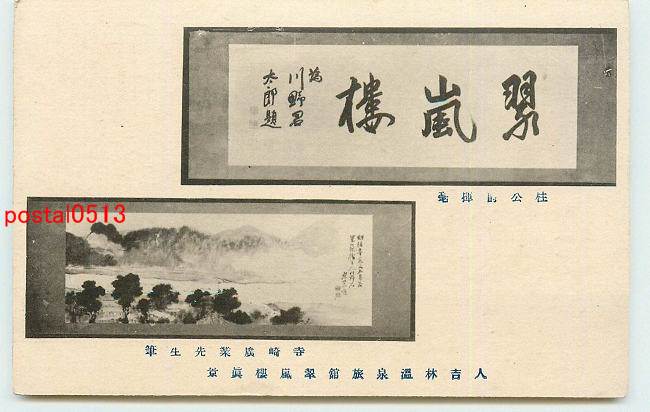 翠嵐樓
為
川野君
太郎題
桂公爵揮毫
postal0513
寺崎廣業先生筆
人吉林溫泉旅館翠嵐樓眞景